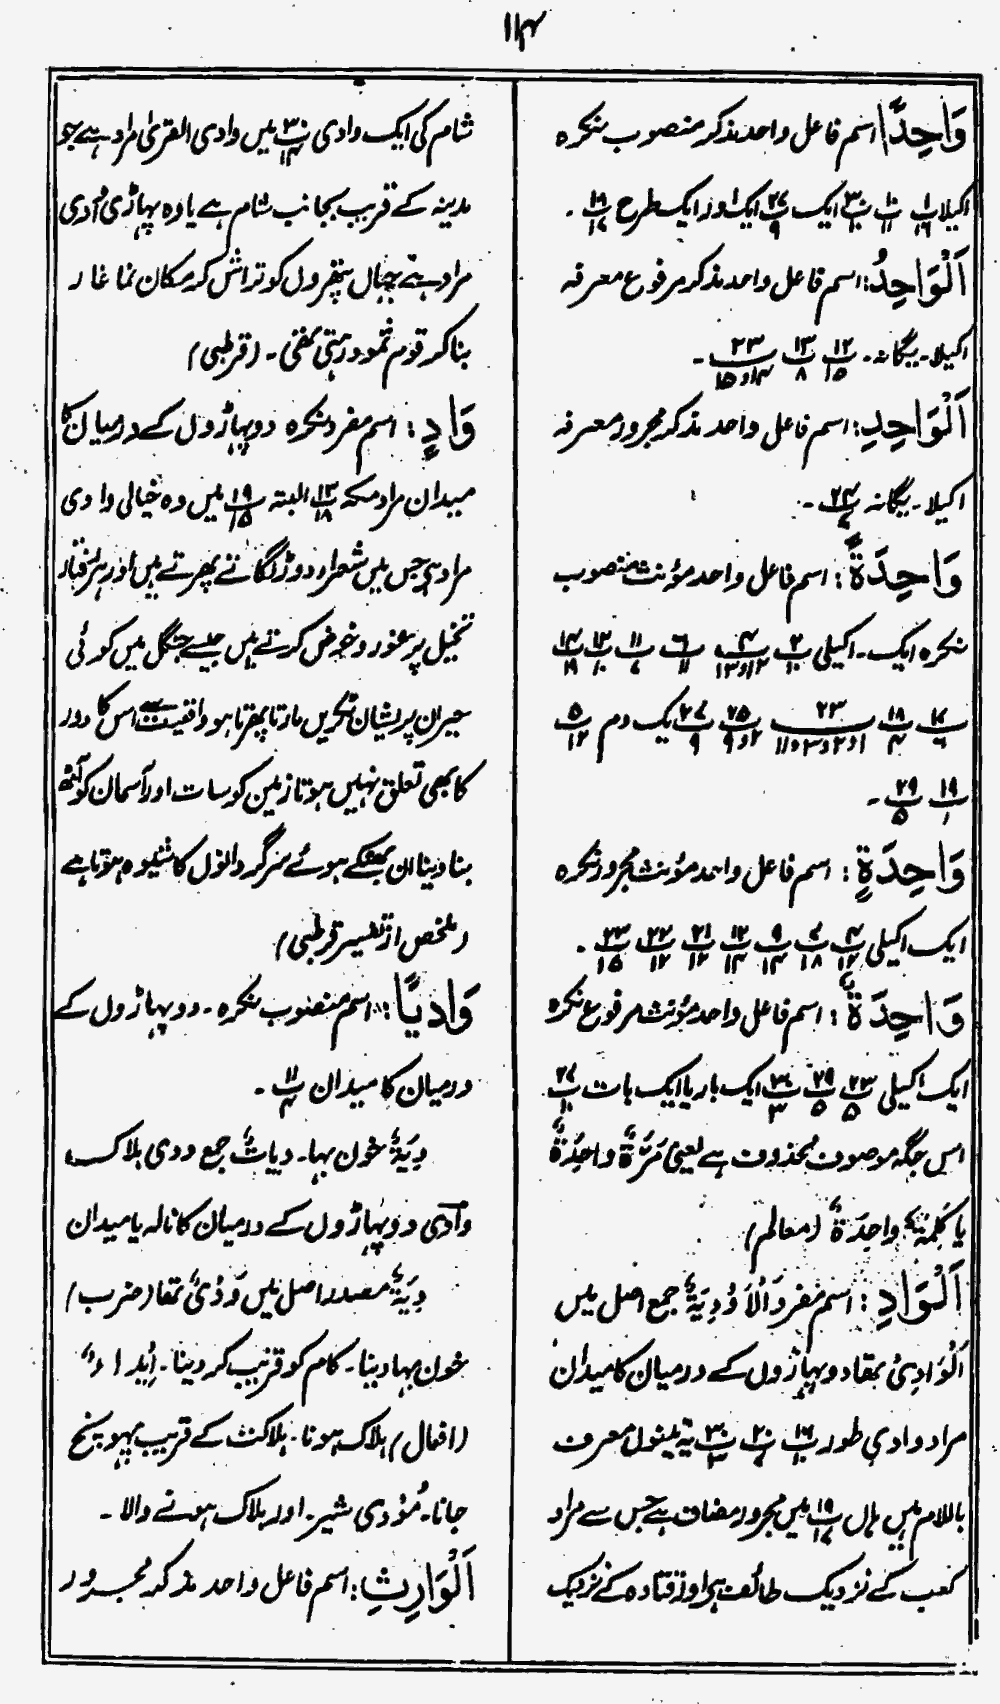 ۱۱۴
وَاحِدًا اسم فاعل واحد مذکر منصوب نکرہ
اکیلا ایک ایک اور ایک طرح
اَلْوَاحِدُ: اسم فاعل واحد مذکر مرفوع معرفہ
اکیلا۔ یگانہ۔
اَلْوَاحِدِ: اسم فاعل واحد مذکر مجرور معرفہ
اکیلا۔ یگانہ
وَاحِدَةً: اسم فاعل واحد مؤنث منصوب
نکرہ ایک۔ اکیلی
ایک دم
۱۹/۱ پ ۲۹/۵ پ ۔
وَاحِدَةٍ: اسم فاعل واحد مؤنث مجرور نکرہ
ایک اکیلی
وَاحِدَةٌ: اسم فاعل واحد مؤنث مرفوع نکرہ
ایک اکیلی ایک بار یا ایک بات
اس جگہ موصوف محذوف ہے یعنی مَرَّةٌ وَاحِدَةٌ
یا کَلِمَةٌ وَاحِدَةٌ (معالم)
اَلْوَادِ: اسم مفرد اَلْاَوْدِیَةُ جمع اصل میں
اَلْوَادِیُ تھا دو پہاڑوں کے درمیان کا میدان
مراد وادی طور معرف
باللام ہیں ہاں میں مجرور مضاف ہے جس سے مراد
کعب کے نزدیک طائف ہے اور قتادہ کے نزدیک
شام کی ایک وادی میں وادی القریٰ مراد ہے جو
مدینہ کے قریب بجانب شام ہے یا وہ پہاڑی وادی
مراد ہے جہاں پتھروں کو تراش کر مکان نما غار
بنا کر قوم ثمود رہتی تھی۔ (قرطبی)
وَادٍ: اسم مفرد نکرہ دو پہاڑوں کے درمیان کا
میدان مراد مکہ البتہ میں وہ خیالی وادی
مراد ہے جس میں شعراء دوڑ لگاتے پھرتے ہیں اور
تخیل پر غور و خوض کرتے ہیں جیسے جنگل میں کوئی
حیران پریشان ٹکریں مارتا پھرتا ہو واقعیت سے اس کا دور
کا بھی تعلق نہیں ہوتا زمین کو سات اور آسمان کو آٹھ
بنا دینا ان بھٹکے ہوئے سرگردانوں کا شیوہ ہوتا ہے
(ملخص از تفسیر قرطبی)
وَادِیًا: اسم منصوب نکرہ۔ دو پہاڑوں کے
درمیان کا میدان ۱۱/۴ پ ۔
دِیَةٌ خون بہا۔ دیاتٌ جمع وَدی ہلاکت
وادی دو پہاڑوں کے درمیان کا نالہ یا میدان
دِیَةٌ مصدر اصل میں وَدْیٌ تھا (ضرب)
خون بہا دینا۔ کام کو قریب کر دینا۔ اِیْدَاءٌ
(افعال) ہلاک ہونا۔ ہلاکت کے قریب پہونچ
جانا۔ مُوْدِی شیر۔ اور ہلاک ہونے والا۔
اَلْوَارِثِ: اسم فاعل واحد مذکر مجرور